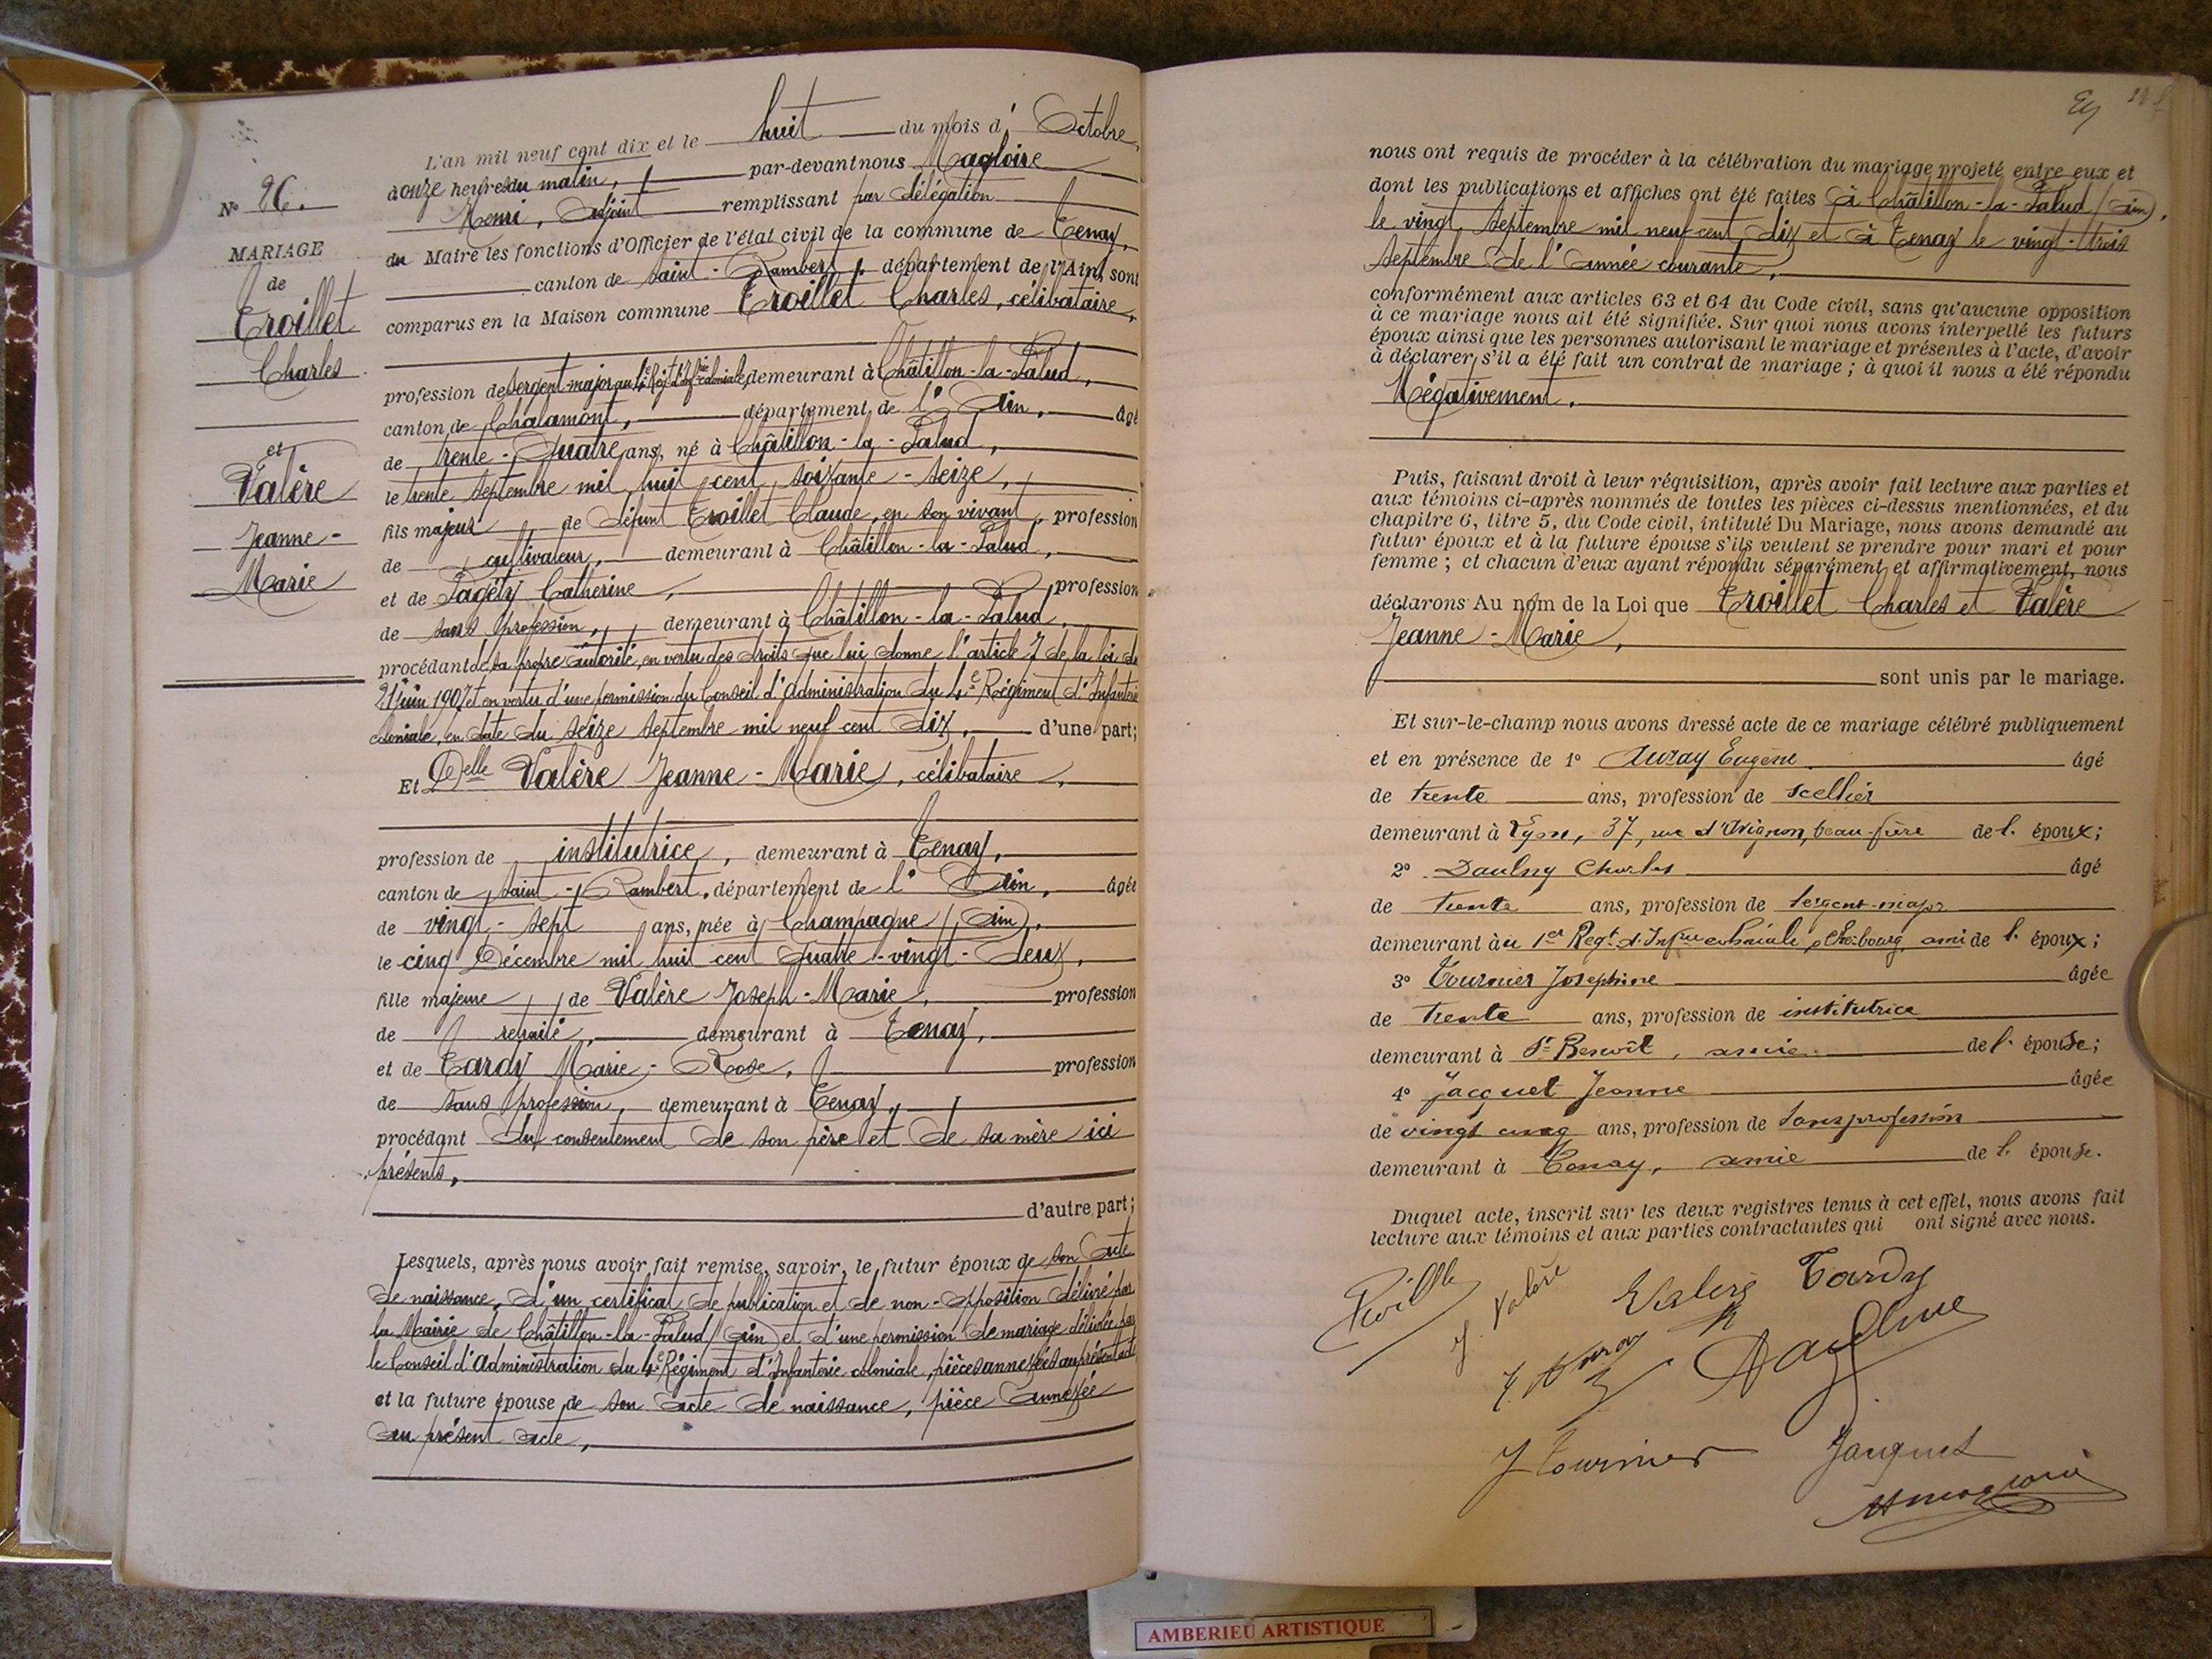 L'an mil neuf cent dix et le huit du mois d'Octobre,
à onze heures du matin, par-devant nous Magloire
Henri, Adjoint remplissant par délégation
du Maire les fonctions d'Officier de l'état civil de la commune de Tenay,
canton de Saint-Rambert, département de l'Ain, sont
comparus en la Maison commune Troillet Charles, célibataire,
profession de Sergent-major au 4e Régt d'Infrie coloniale, demeurant à Châtillon-la-Palud,
canton de Chalamont, département de l'Ain, âgé
de trente-quatre ans, né à Châtillon-la-Palud,
le trente septembre mil huit cent soixante-seize,
fils majeur de défunt Troillet Claude, en son vivant, profession
de cultivateur, demeurant à Châtillon-la-Palud,
et de Catherine, profession
de sans profession, demeurant à Châtillon-la-Palud,
procédant de sa propre autorité, en vertu des droits que lui donne l'article 7 de la loi du
21 juin 1907 et en vertu d'une permission du Conseil d'Administration du 4e Régiment d'Infanterie
coloniale, en date du seize septembre mil neuf cent dix, d'une part;
Et Delle Valère Jeanne-Marie, célibataire,
profession de institutrice, demeurant à Tenay,
canton de Saint-Rambert, département de l'Ain, âgée
de vingt-sept ans, née à Champagne (Ain),
le cinq Décembre mil huit cent quatre-vingt-deux,
fille majeure de Valère Joseph-Marie, profession
de retraité, demeurant à Tenay,
et de Tardy Marie-Rose, profession
de sans profession, demeurant à Tenay,
procédant du consentement de son père et de sa mère ici
présents,
d'autre part;
Lesquels, après nous avoir fait remise, savoir, le futur époux de son acte
de naissance, d'un certificat de publication et de non-opposition délivré par
la Mairie de Châtillon-la-Palud (Ain) et d'une permission de mariage délivrée par
le Conseil d'Administration du 4e Régiment d'Infanterie coloniale, pièces annexées au présent acte
et la future épouse de son acte de naissance, pièce annexée
au présent acte,
No 26.
MARIAGE
de
Troillet
Charles
et
Valère
Jeanne-
Marie
nous ont requis de procéder à la célébration du mariage projeté entre eux et
dont les publications et affiches ont été faites à Châtillon-la-Palud (Ain),
le vingt septembre mil neuf cent dix et à Tenay le vingt-trois
septembre de l'année courante,
conformément aux articles 63 et 64 du Code civil, sans qu'aucune opposition
à ce mariage nous ait été signifiée. Sur quoi nous avons interpellé les futurs
époux ainsi que les personnes autorisant le mariage et présentes à l'acte, d'avoir
à déclarer s'il a été fait un contrat de mariage ; à quoi il nous a été répondu
Négativement.
Puis, faisant droit à leur réquisition, après avoir fait lecture aux parties et
aux témoins ci-après nommés de toutes les pièces ci-dessus mentionnées, et du
chapitre 6, titre 5, du Code civil, intitulé Du Mariage, nous avons demandé au
futur époux et à la future épouse s'ils veulent se prendre pour mari et pour
femme ; et chacun d'eux ayant répondu séparément et affirmativement, nous
déclarons Au nom de la Loi que Troillet Charles et Valère
Jeanne-Marie,
sont unis par le mariage.
Et sur-le-champ nous avons dressé acte de ce mariage célébré publiquement
et en présence de 1o Auray Eugène âgé
de trente ans, profession de scellier
demeurant à Lyon, 37, rue d'Avignon, beau-frère de l'époux;
2o Charles âgé
de trente ans, profession de sergent-major
demeurant au 1er Regt d'Infrie coloniale, Cherbourg, ami de l'époux;
3o Tournier Josephine âgée
de trente ans, profession de institutrice
demeurant à St Benoît, amie de l'épouse;
4o Jacquet Jeanne âgée
de vingt cinq ans, profession de sans profession
demeurant à Tenay, amie de l'épouse.
Duquel acte, inscrit sur les deux registres tenus à cet effet, nous avons fait
lecture aux témoins et aux parties contractantes qui ont signé avec nous.
J. Valère Valère Tardy
J Tournier Jacquet
AMBERIEU ARTISTIQUE